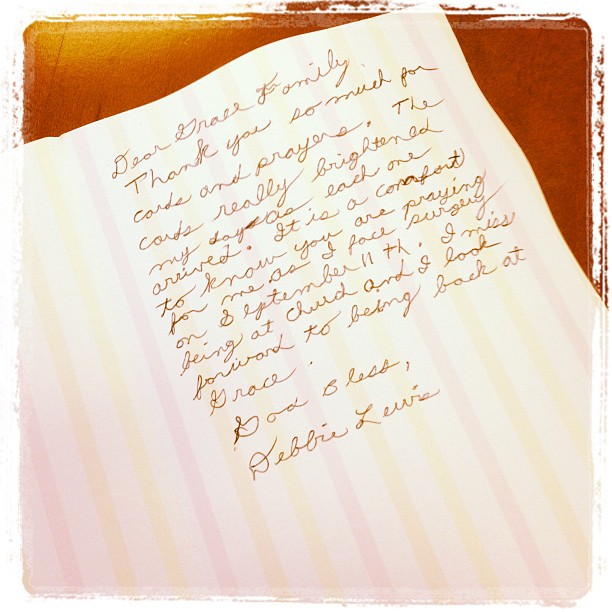 Dear Grace Family,
Thank you so much for
cards and prayers. The
cards really brightened
my days as each one
arrived. It is a comfort
to know you are praying
for me as I face surgery
on September 11th. I miss
being at church and I look
forward to being back at
Grace.
God Bless,
Debbie Lewis